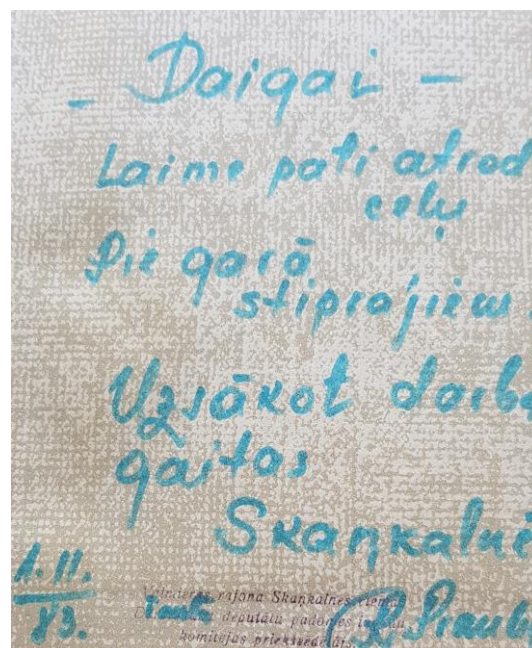 - Daigai -
Laime pati atrod
ceļu
Pie garā
stiprajiem
Uzsākot darba
gaitas
Skaņkalnē
1.11.
83.
Valmieras rajona Skaņkalnes ciema
Tautas deputātu padomes
komitejas priekšsēdētājs